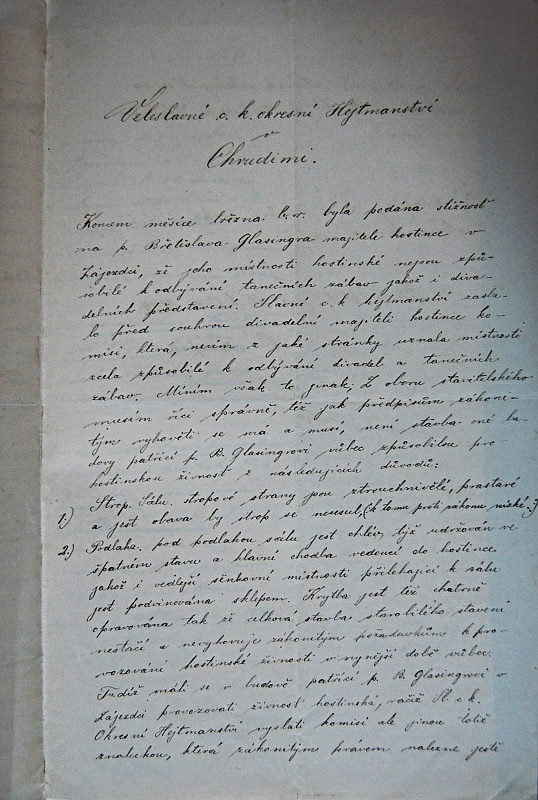 Veleslavné c. k. okresní Hejtmanství
v
Chrudimi.
Koncem měsíce března b. r. byla podána stížnost
na p. Břetislava Glasingra majitele hostince v
Zájezdci, že jeho místnosti hostinské nejsou způ-
sobilé k odbývání tanečních zábav jakož i diva-
delních představení. Slavné c. k. hejtmanství zasla-
lo před souhrou divadelní majiteli hostince ko-
misi, která, nevím z jaké stránky uznala místnosti
zcela způsobilé k odbývání divadel a tanečních
zábav. Míním však to jinak; Z oboru stavitelského
musím říci správně, též jak předpisům zákoni-
tým vyhověti se má a musí, není stavba oné bu-
dovy patřící p. B. Glasingrovi vůbec způsobilou pro
hostinskou živnost z následujících důvodů:
1.) Strop. Sálu. stropové strany jsou ztrouchnivělé, prastaré
a jest obava by strop se nesesul, (k tomu proti zákonu nízké.)
2.) Podlahu. pod podlahou sálu jest chlév, týž udržován ve
špatném stavu a hlavní chodba vedoucí do hostince
jakož i vedlejší šenkovní místnosti přiléhající k sálu
jest podvinována sklepem. Krytba jest též chatrně
opravována tak že celková stavba starobilého stavení
nestačí a nevyhovuje zákonitým požadavkům k pro-
vozování hostinské živnosti v nynější době vůbec.
Tudíž máli se v budově patřící p. B. Glasingrovi v
Zájezdci provozovati živnost hostinská, račiž Sl. c. k.
Okresní Hejtmanství vyslati komisi ale jinou totiž
znaleckou, která zákonitým právem nalezne jestli